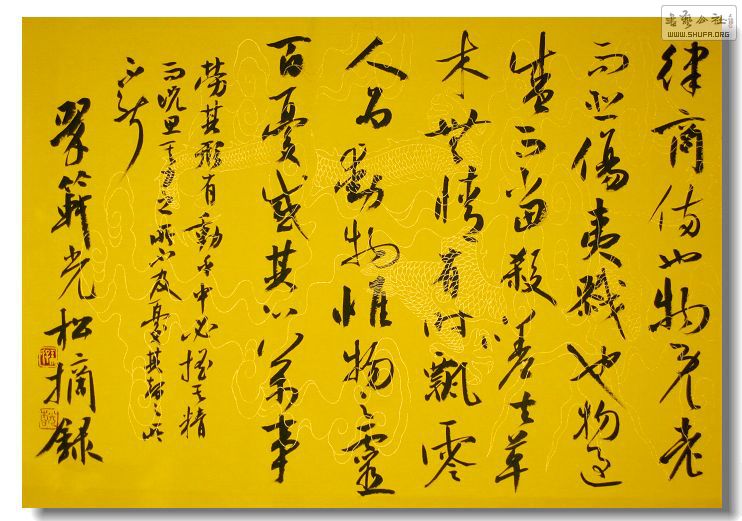 律商傷也物既老
而悲傷夷戮也物過
盛而當殺嗟夫草
木無情有時飄零
人為動物惟物之靈
百憂感其心萬事
勞其形有動乎中必搖其精
而況思其力之所不及憂其智之所
不能
光松摘錄
書藝公社
WWW.SHUFA.ORG